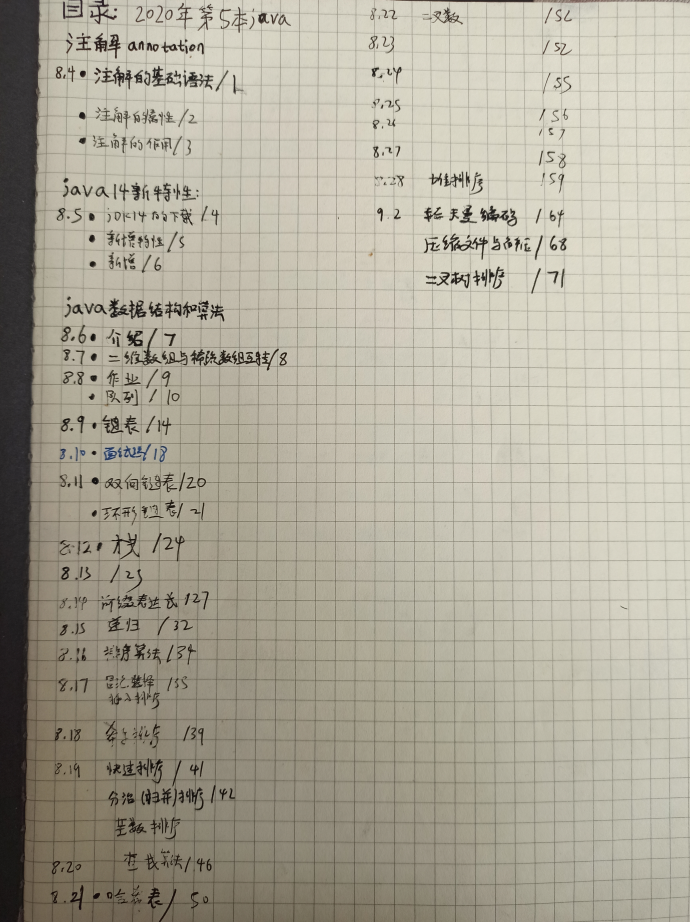 目录: 2020年第5本java
注解 annotation
8.4 • 注解的基础语法/1
• 注解的属性/2
• 注解的作用/3
java14新特性:
8.5 • jDK14的下载/4
• 新增特性/5
• 新增/6
java数据结构和算法
8.6 • 介绍/7
8.7 • 二维数组与稀疏数组互转/8
8.8 • 作业/9
• 队列/10
8.9 • 链表/14
8.10 • 面试题/18
8.11 • 双向链表/20
• 环形链表/21
8.12 • 栈/24
8.13 /25
8.14 前缀表达式/27
8.15 递归/32
8.16 排序算法/34
8.17 冒泡选择/35
插入排序
8.18 希尔排序/39
8.19 快速排序/41
分治(归并)排序/42
基数排序
8.20 查找算法/46
8.21 • 哈希表/50
8.22 二叉数/52
8.23 /52
8.24 /55
8.25 /56
8.26 /57
8.27 /58
8.28 堆排序/59
9.2 夫曼编码/64
压缩文件与解压/68
二叉树排序/71